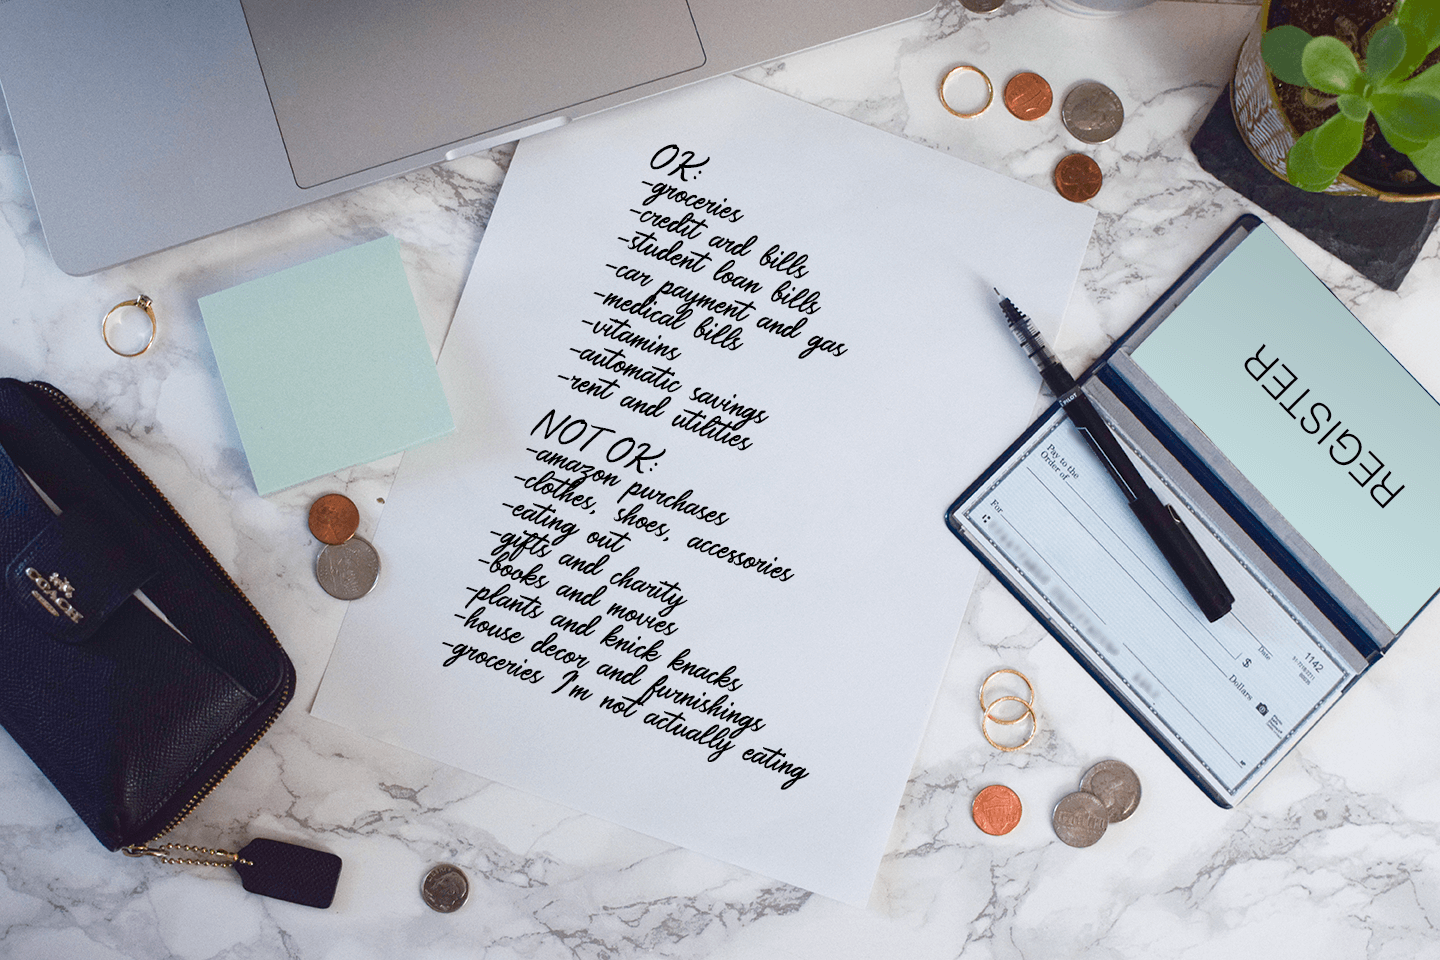 OK:
-groceries
-credit ard bills
-student loan bills
-car payment and gas
-medical bills
-vitamins
-automatic savings
-rent and utilities
NOT OK:
-amazon purchases
-clothes, shoes, accessories
-eating out
-gifts and charity
-books and movies
-plants and knick knacks
-house decor and furnishings
-groceries I'm not actually eating
REGISTER
PILOT
Pay to the
Order of
For
Date
$
Dollars
1142
COACH